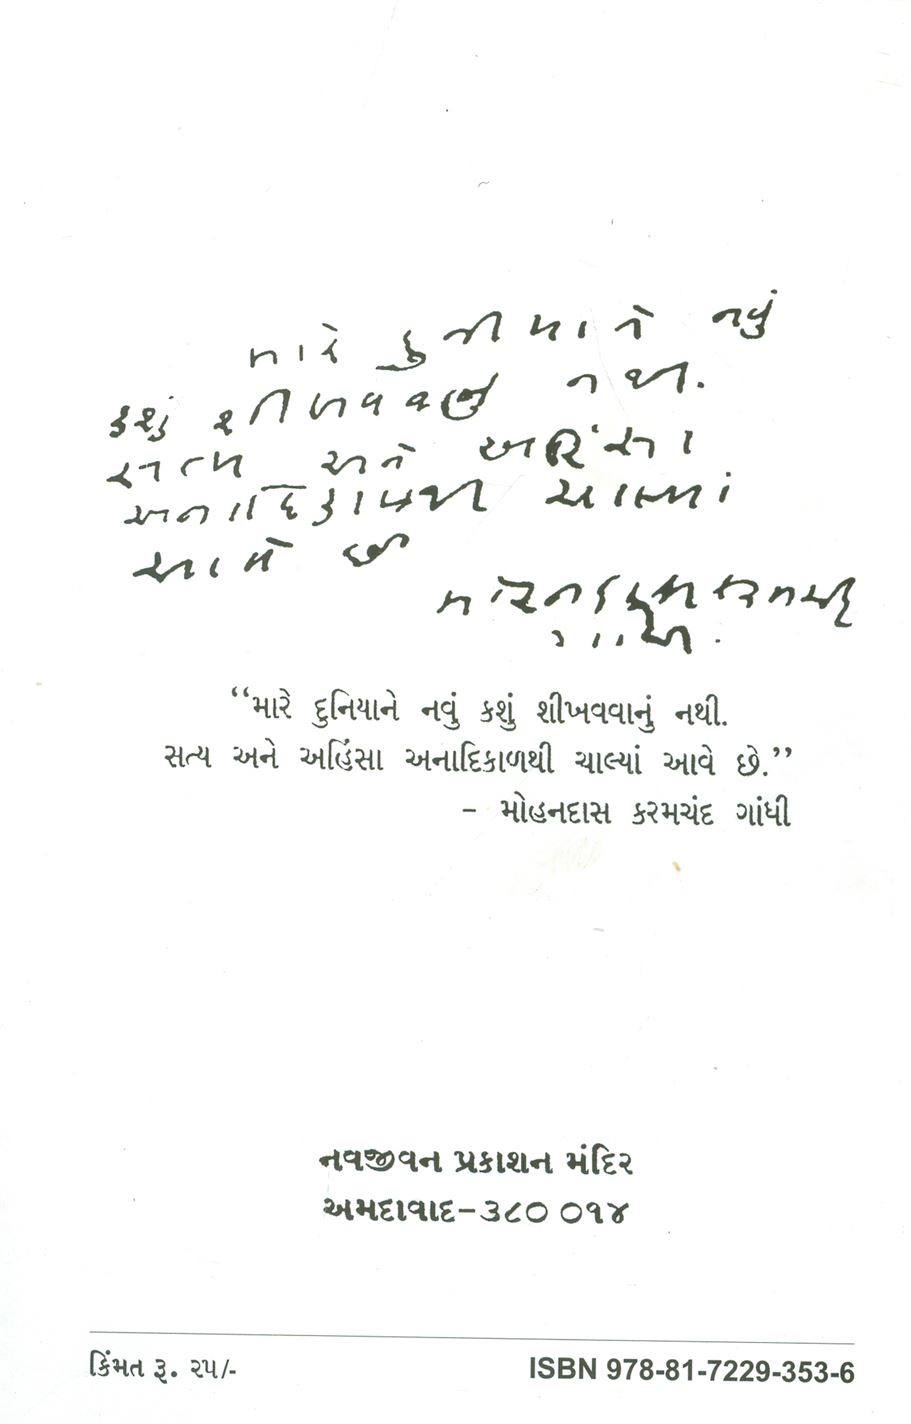 મારે દુનીયાને નવું
કશું શીખવવાનું નથી.
સત્ય અને અહિંસા
અનાદિકાળથી ચાલ્યાં
આવે છે
મોહનદાસ કરમચંદ
ગાંધી.
“મારે દુનિયાને નવું કશું શીખવવાનું નથી.
સત્ય અને અહિંસા અનાદિકાળથી ચાલ્યાં આવે છે.”
– મોહનદાસ કરમચંદ ગાંધી
નવજીવન પ્રકાશન મંદિર
અમદાવાદ–૩૮૦ ૦૧૪
કિંમત રૂ. ૨૫/-
ISBN 978-81-7229-353-6